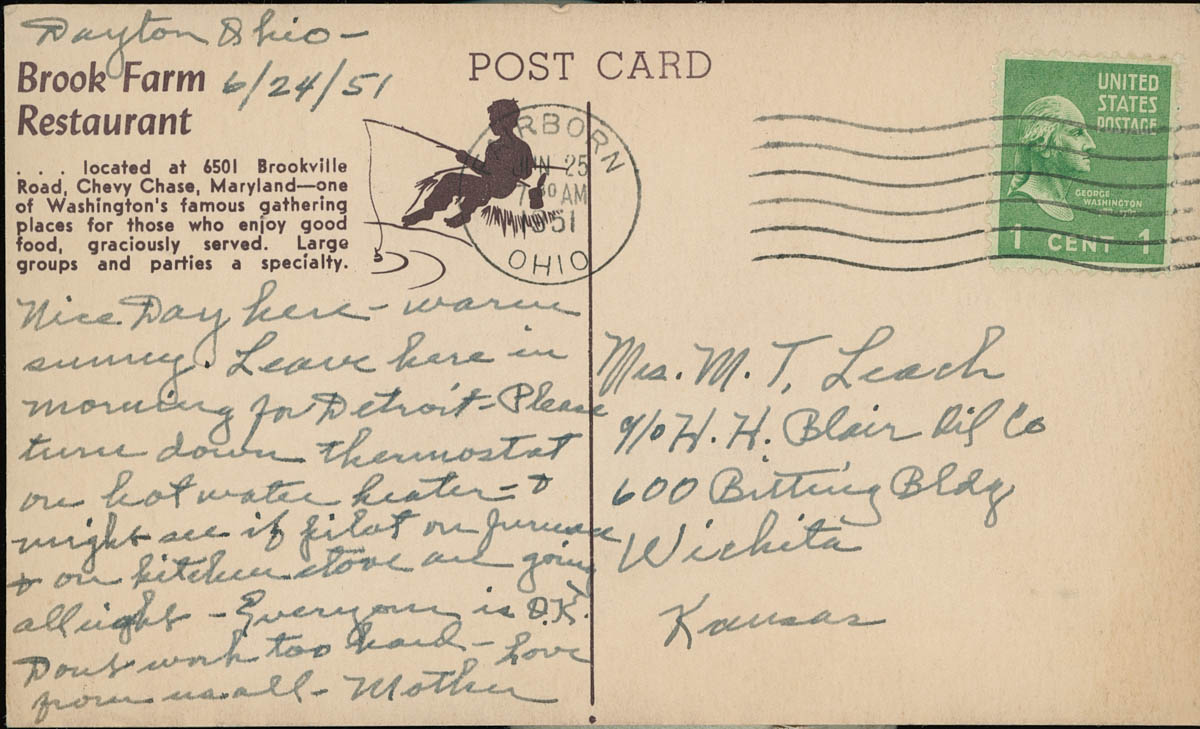 Dayton Ohio -
6/24/51
Brook Farm
Restaurant
. . . located at 6501 Brookville
Road, Chevy Chase, Maryland—one
of Washington's famous gathering
places for those who enjoy good
food, graciously served. Large
groups and parties a specialty.
POST CARD
FAIRBORN
JUN 25
7 30 AM
1951
OHIO
UNITED
STATES
POSTAGE
GEORGE
WASHINGTON
1 CENT 1
Nice Day here - warm
sunny. Leave here in
morning for Detroit - Please
turn down thermostat
on hot water heater - &
might see if pilot on furnace
& on kitchen stove are going
allright - Everyone is O.K.
Dont work too hard - Love
from us all - Mother
Mrs. M. T. Leach
c/o H. H. Blair Oil Co
600 Bitting Bldg
Wichita
Kansas